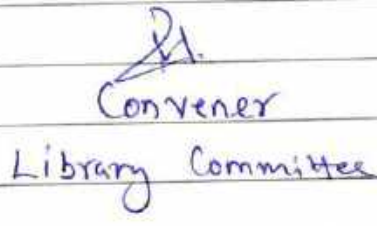 Convener
Library Committee